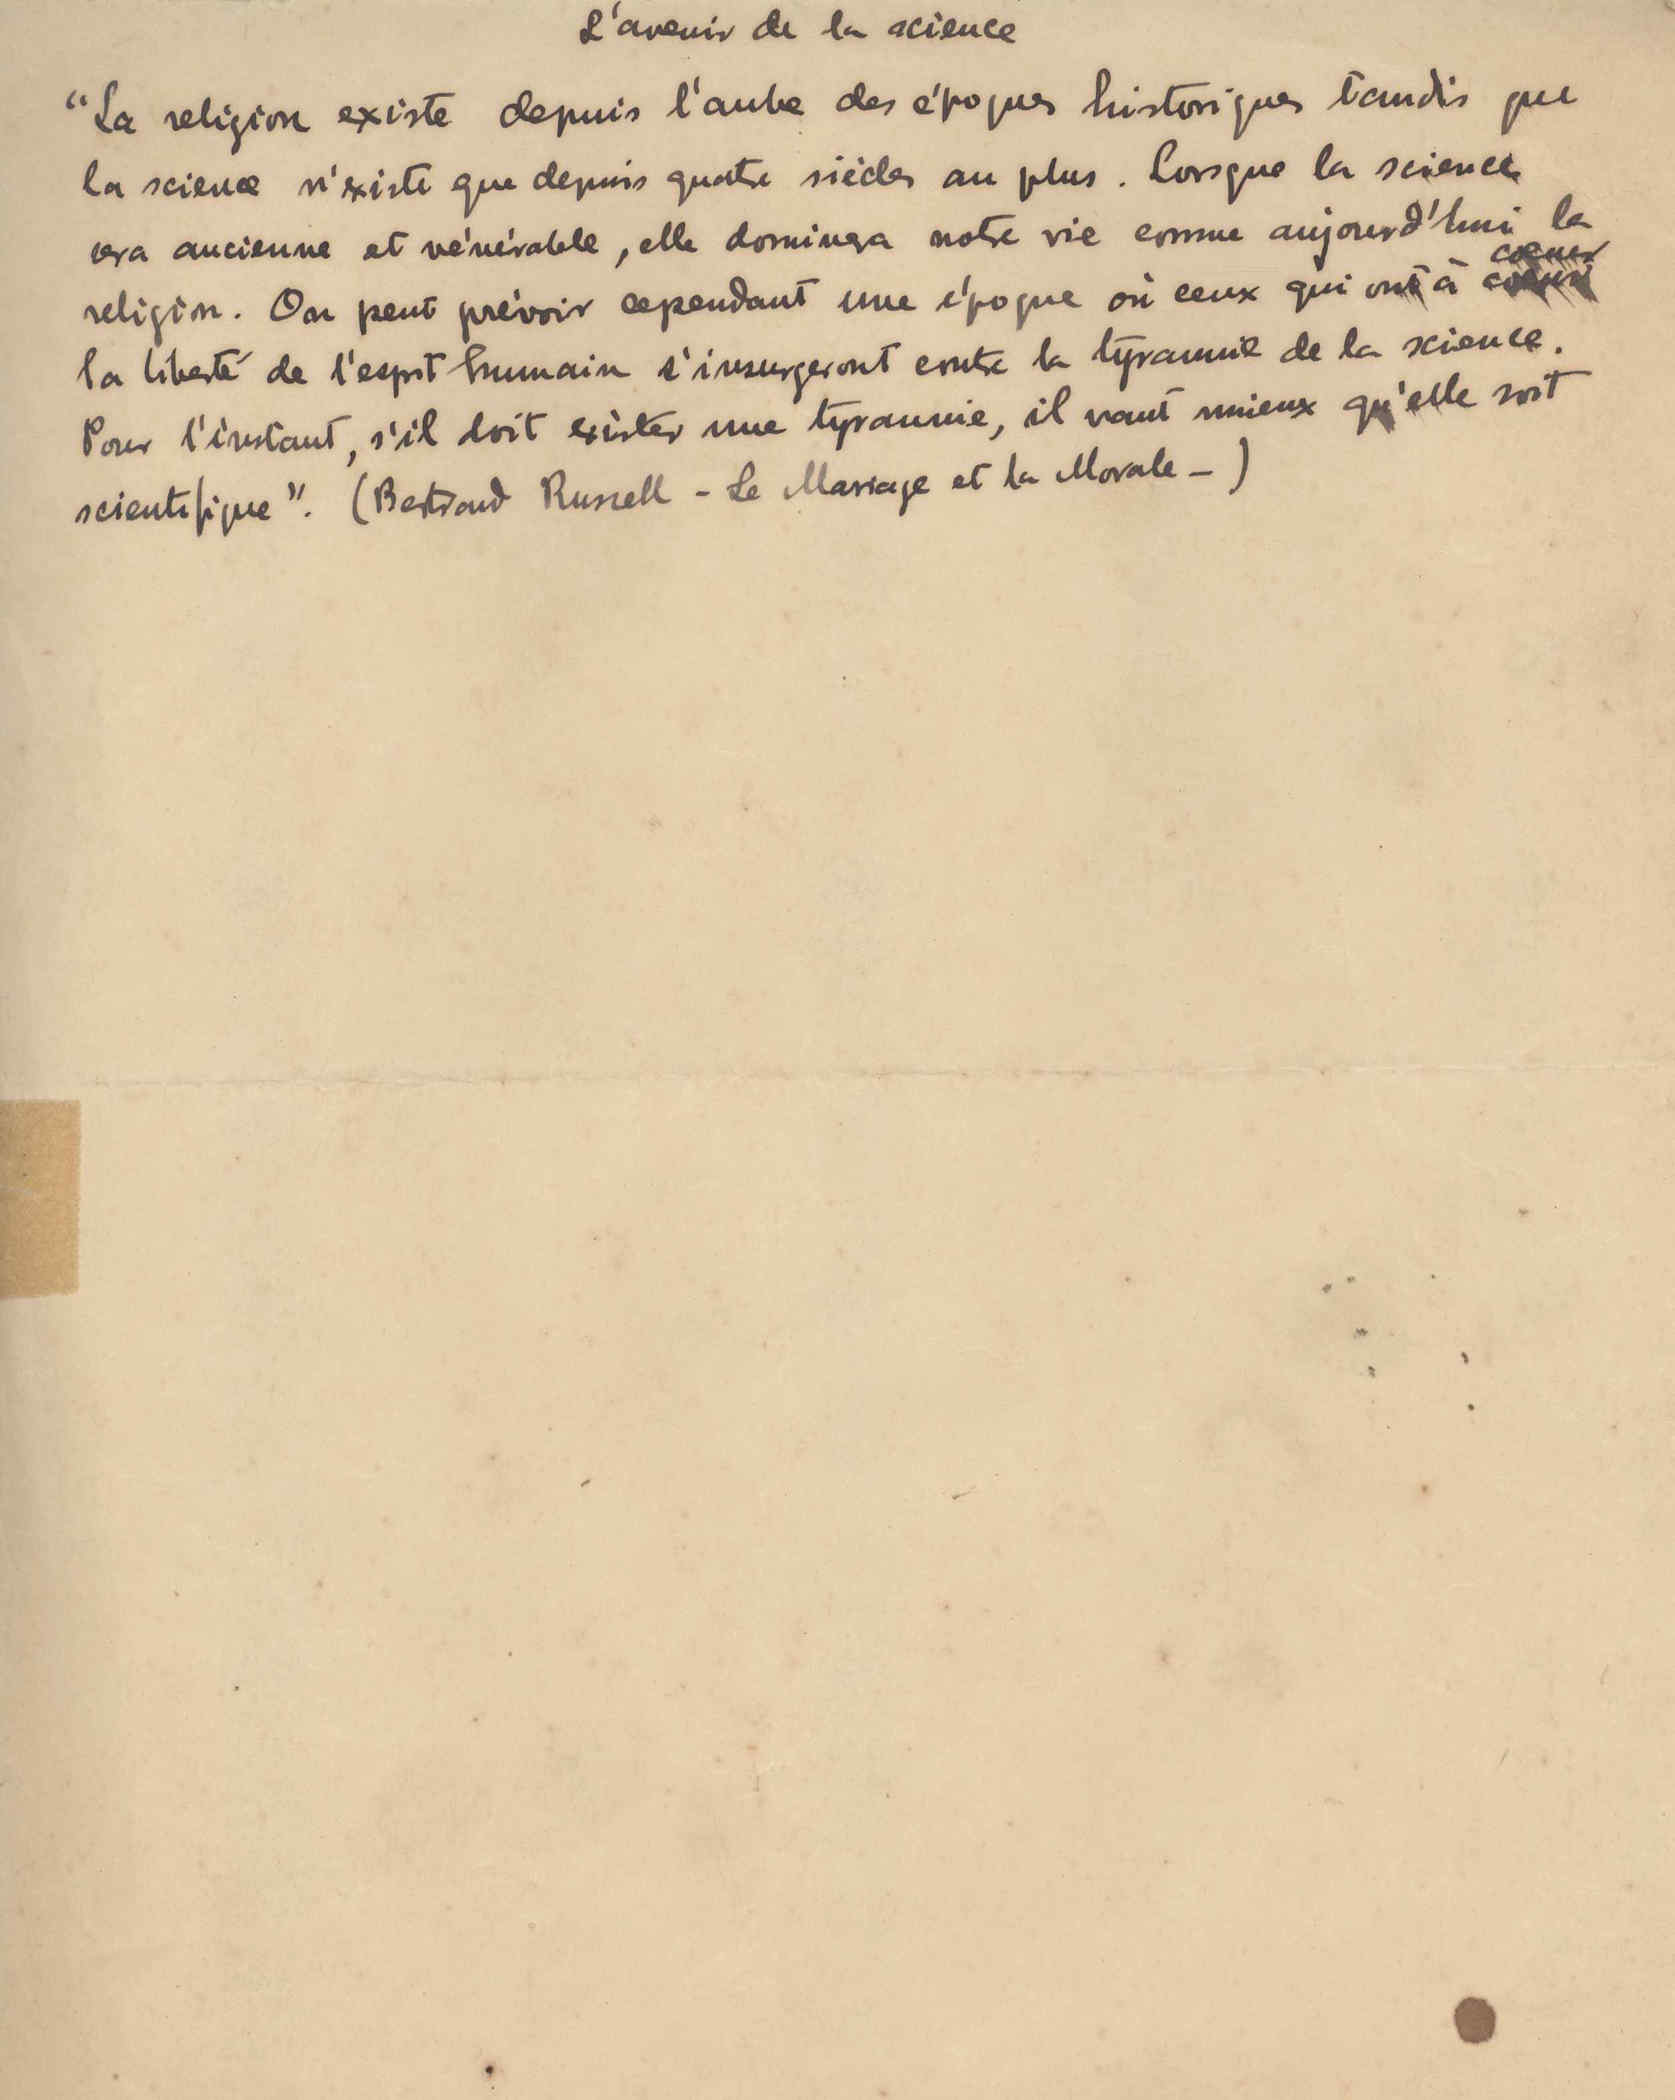 L'avenir de la science
“La religion existe depuis l'aube des époques historiques tandis que
la science n'existe que depuis quatre siècles au plus. Lorsque la science
sera ancienne et vénérable, elle dominera notre vie comme aujourd'hui la
religion. On peut prévoir cependant une époque où ceux qui ont à coeur
la liberté de l'esprit humain s'insurgeront contre la tyrannie de la science.
Pour l'instant, s'il doit exister une tyrannie, il vaut mieux qu'elle soit
scientifique”. (Bertrand Russell - Le Mariage et la Morale -)